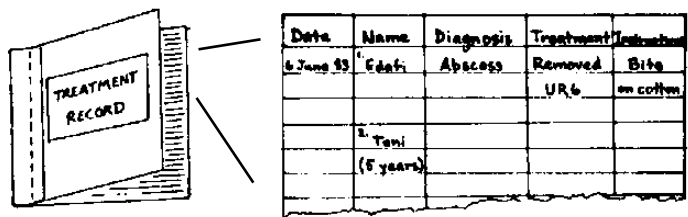 TREATMENT
RECORD
Date Name Diagnosis Treatment Instructions
6 June 83 1. Edafi Abscess Removed Bite
UR6 on cotton
2. Toni
(5 years)